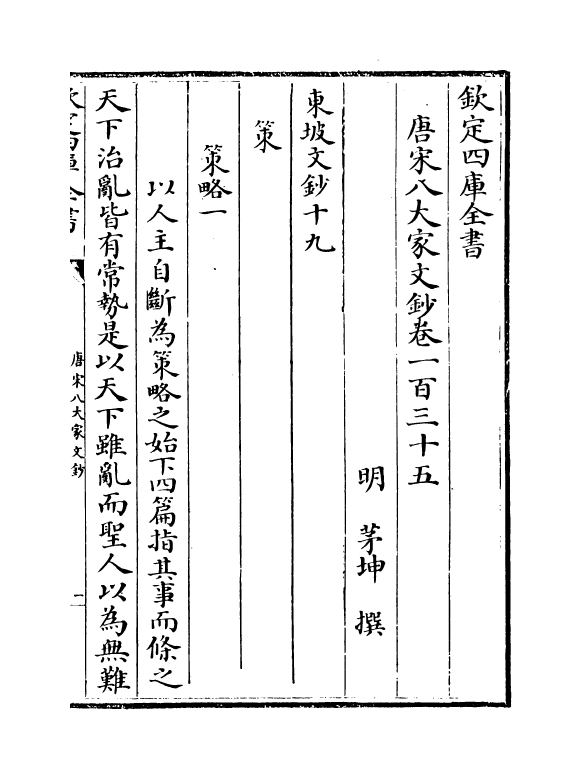 欽定四庫全書
唐宋八大家文鈔卷一百三十五
明 茅坤 撰
東坡文鈔十九
策
策略一
以人主自斷為策略之始下四篇指其事而條之
天下治亂皆有常勢是以天下雖亂而聖人以為無難
欽定四庫全書
唐宋八大家文鈔